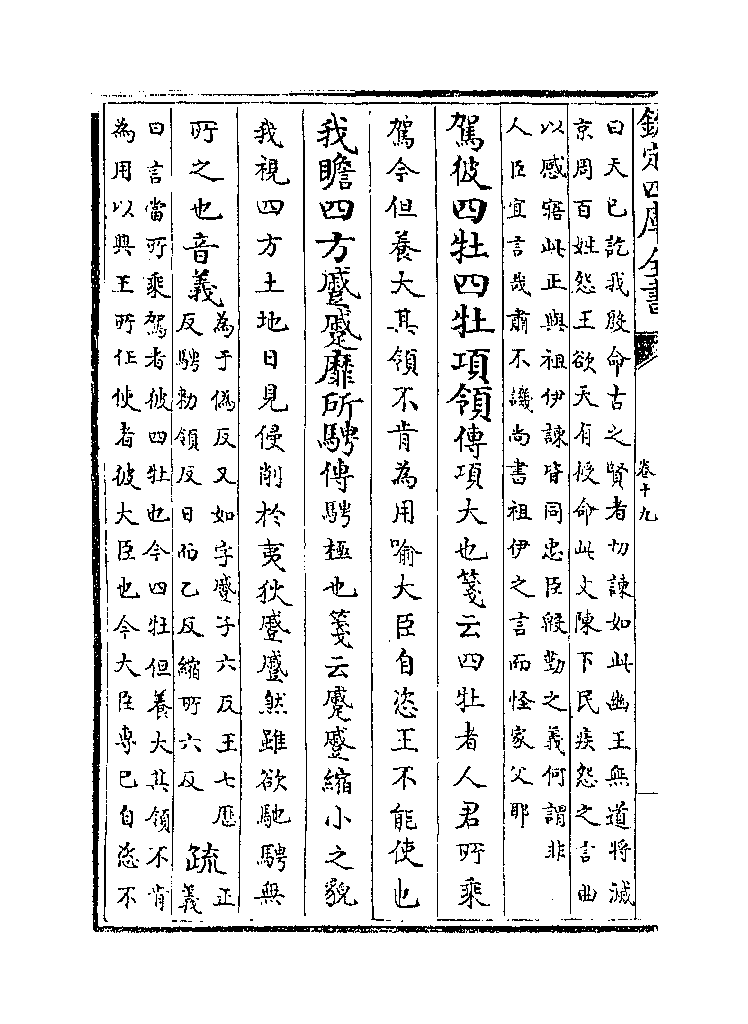 欽定四庫全書
卷十九
曰天已訖我殷命古之賢者切諫如此幽王無道將滅
京周百姓怨王欲天有授命此文陳下民疾怨之言曲
以感寤此正與祖伊諫皆同忠臣殷勤之義何謂非
人臣宜言哉肅不譏尚書祖伊之言而怪家父耶
駕彼四牡四牡項領傳項大也箋云四牡者人君所乘
駕今但養大其領不肯為用喻大臣自恣王不能使也
我瞻四方蹙蹙靡所騁傳騁極也箋云蹙蹙縮小之貌
我視四方土地日見侵削於夷狄蹙蹙然雖欲馳騁無
所之也音義
為于偽反又如字蹙子六反王七歷
反騁勑領反日而乙反縮所六反
疏
正
義
曰言當所乘駕者彼四牡也今四牡但養大其領不肯
為用以興王所任使者彼大臣也今大臣專己自恣不